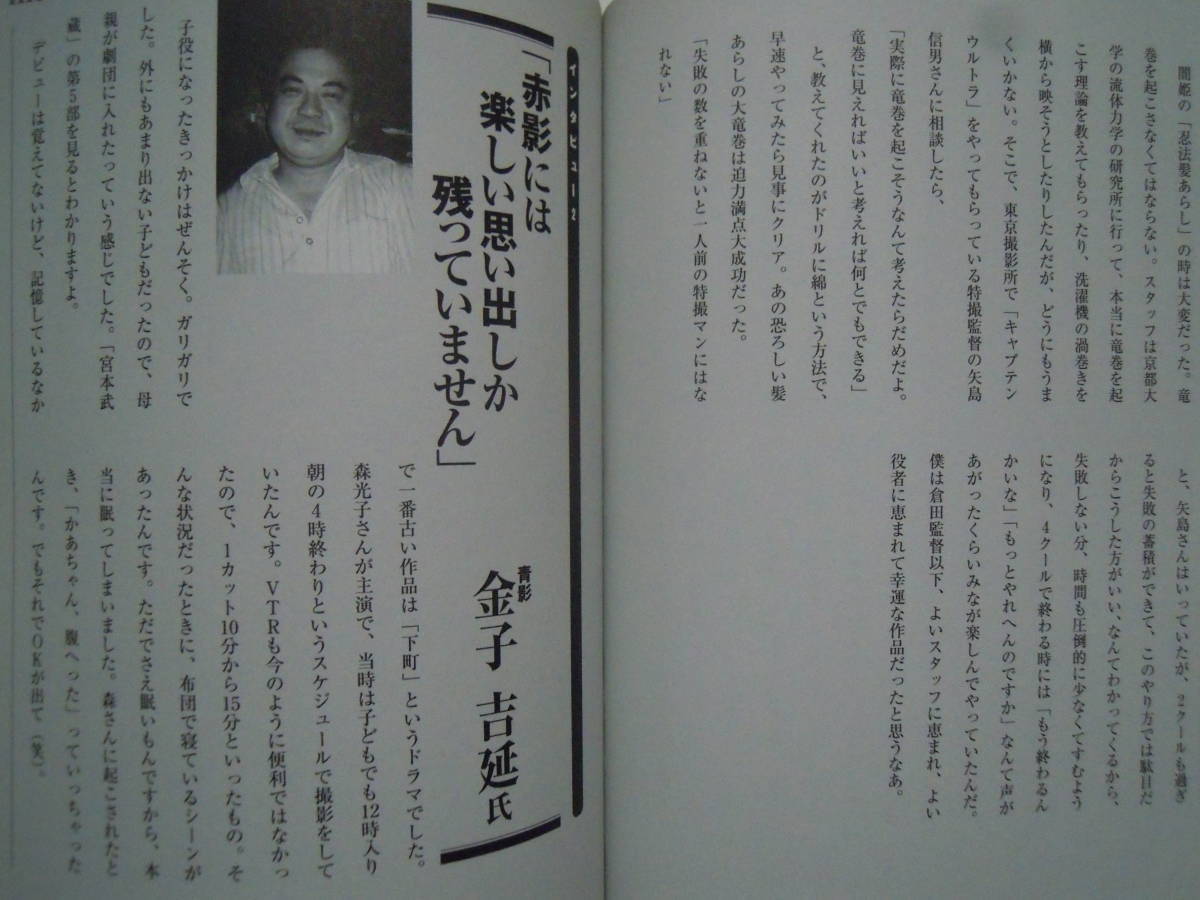 闇姫の「忍法髪あらし」の時は大変だった。竜
巻を起こさなくてはならない。スタッフは京都大
学の流体力学の研究所に行って、本当に竜巻を起
こす理論を教えてもらったり、洗濯機の渦巻きを
横から映そうとしたりしたんだが、どうにもうま
くいかない。そこで、東京撮影所で「キャプテン
ウルトラ」をやってもらっている特撮監督の矢島
信男さんに相談したら、
「実際に竜巻を起こそうなんて考えたらだめだよ。
竜巻に見えればいいと考えれば何とでもできる」
と、教えてくれたのがドリルに綿という方法で、
早速やってみたら見事にクリア。あの恐ろしい髪
あらしの大竜巻は迫力満点大成功だった。
「失敗の数を重ねないと一人前の特撮マンにはな
れない」
と、矢島さんはいっていたが、2クールも過ぎ
ると失敗の蓄積ができて、このやり方では駄目だ
からこうした方がいい、なんてわかってくるから、
失敗しない分、時間も圧倒的に少なくてすむよう
になり、4クールで終わる時には「もう終わるん
かいな」「もっとやれへんのですか」なんて声が
あがったくらいみなが楽しんでやっていたんだ。
僕は倉田監督以下、よいスタッフに恵まれ、よい
役者に恵まれて幸運な作品だったと思うなあ。
インタビュー2
「赤影には
楽しい思い出しか
残っていません」
青影
金子 吉延氏
子役になったきっかけはぜんそく。ガリガリで
した。外にもあまり出ない子どもだったので、母
親が劇団に入れたっていう感じでした。「宮本武
蔵」の第5部を見るとわかりますよ。
デビューは覚えてないけど、記憶しているなか
で一番古い作品は「下町」というドラマでした。
森光子さんが主演で、当時は子どもでも12時入り
朝の4時終わりというスケジュールで撮影をして
いたんです。VTRも今のように便利ではなかっ
たので、1カット10分から15分といったもの。そ
んな状況だったときに、布団で寝ているシーンが
あったんです。ただでさえ眠いもんですから、本
当に眠ってしまいました。森さんに起こされたと
き、「かあちゃん、腹へった」っていっちゃった
んです。でもそれでOKが出て（笑）。